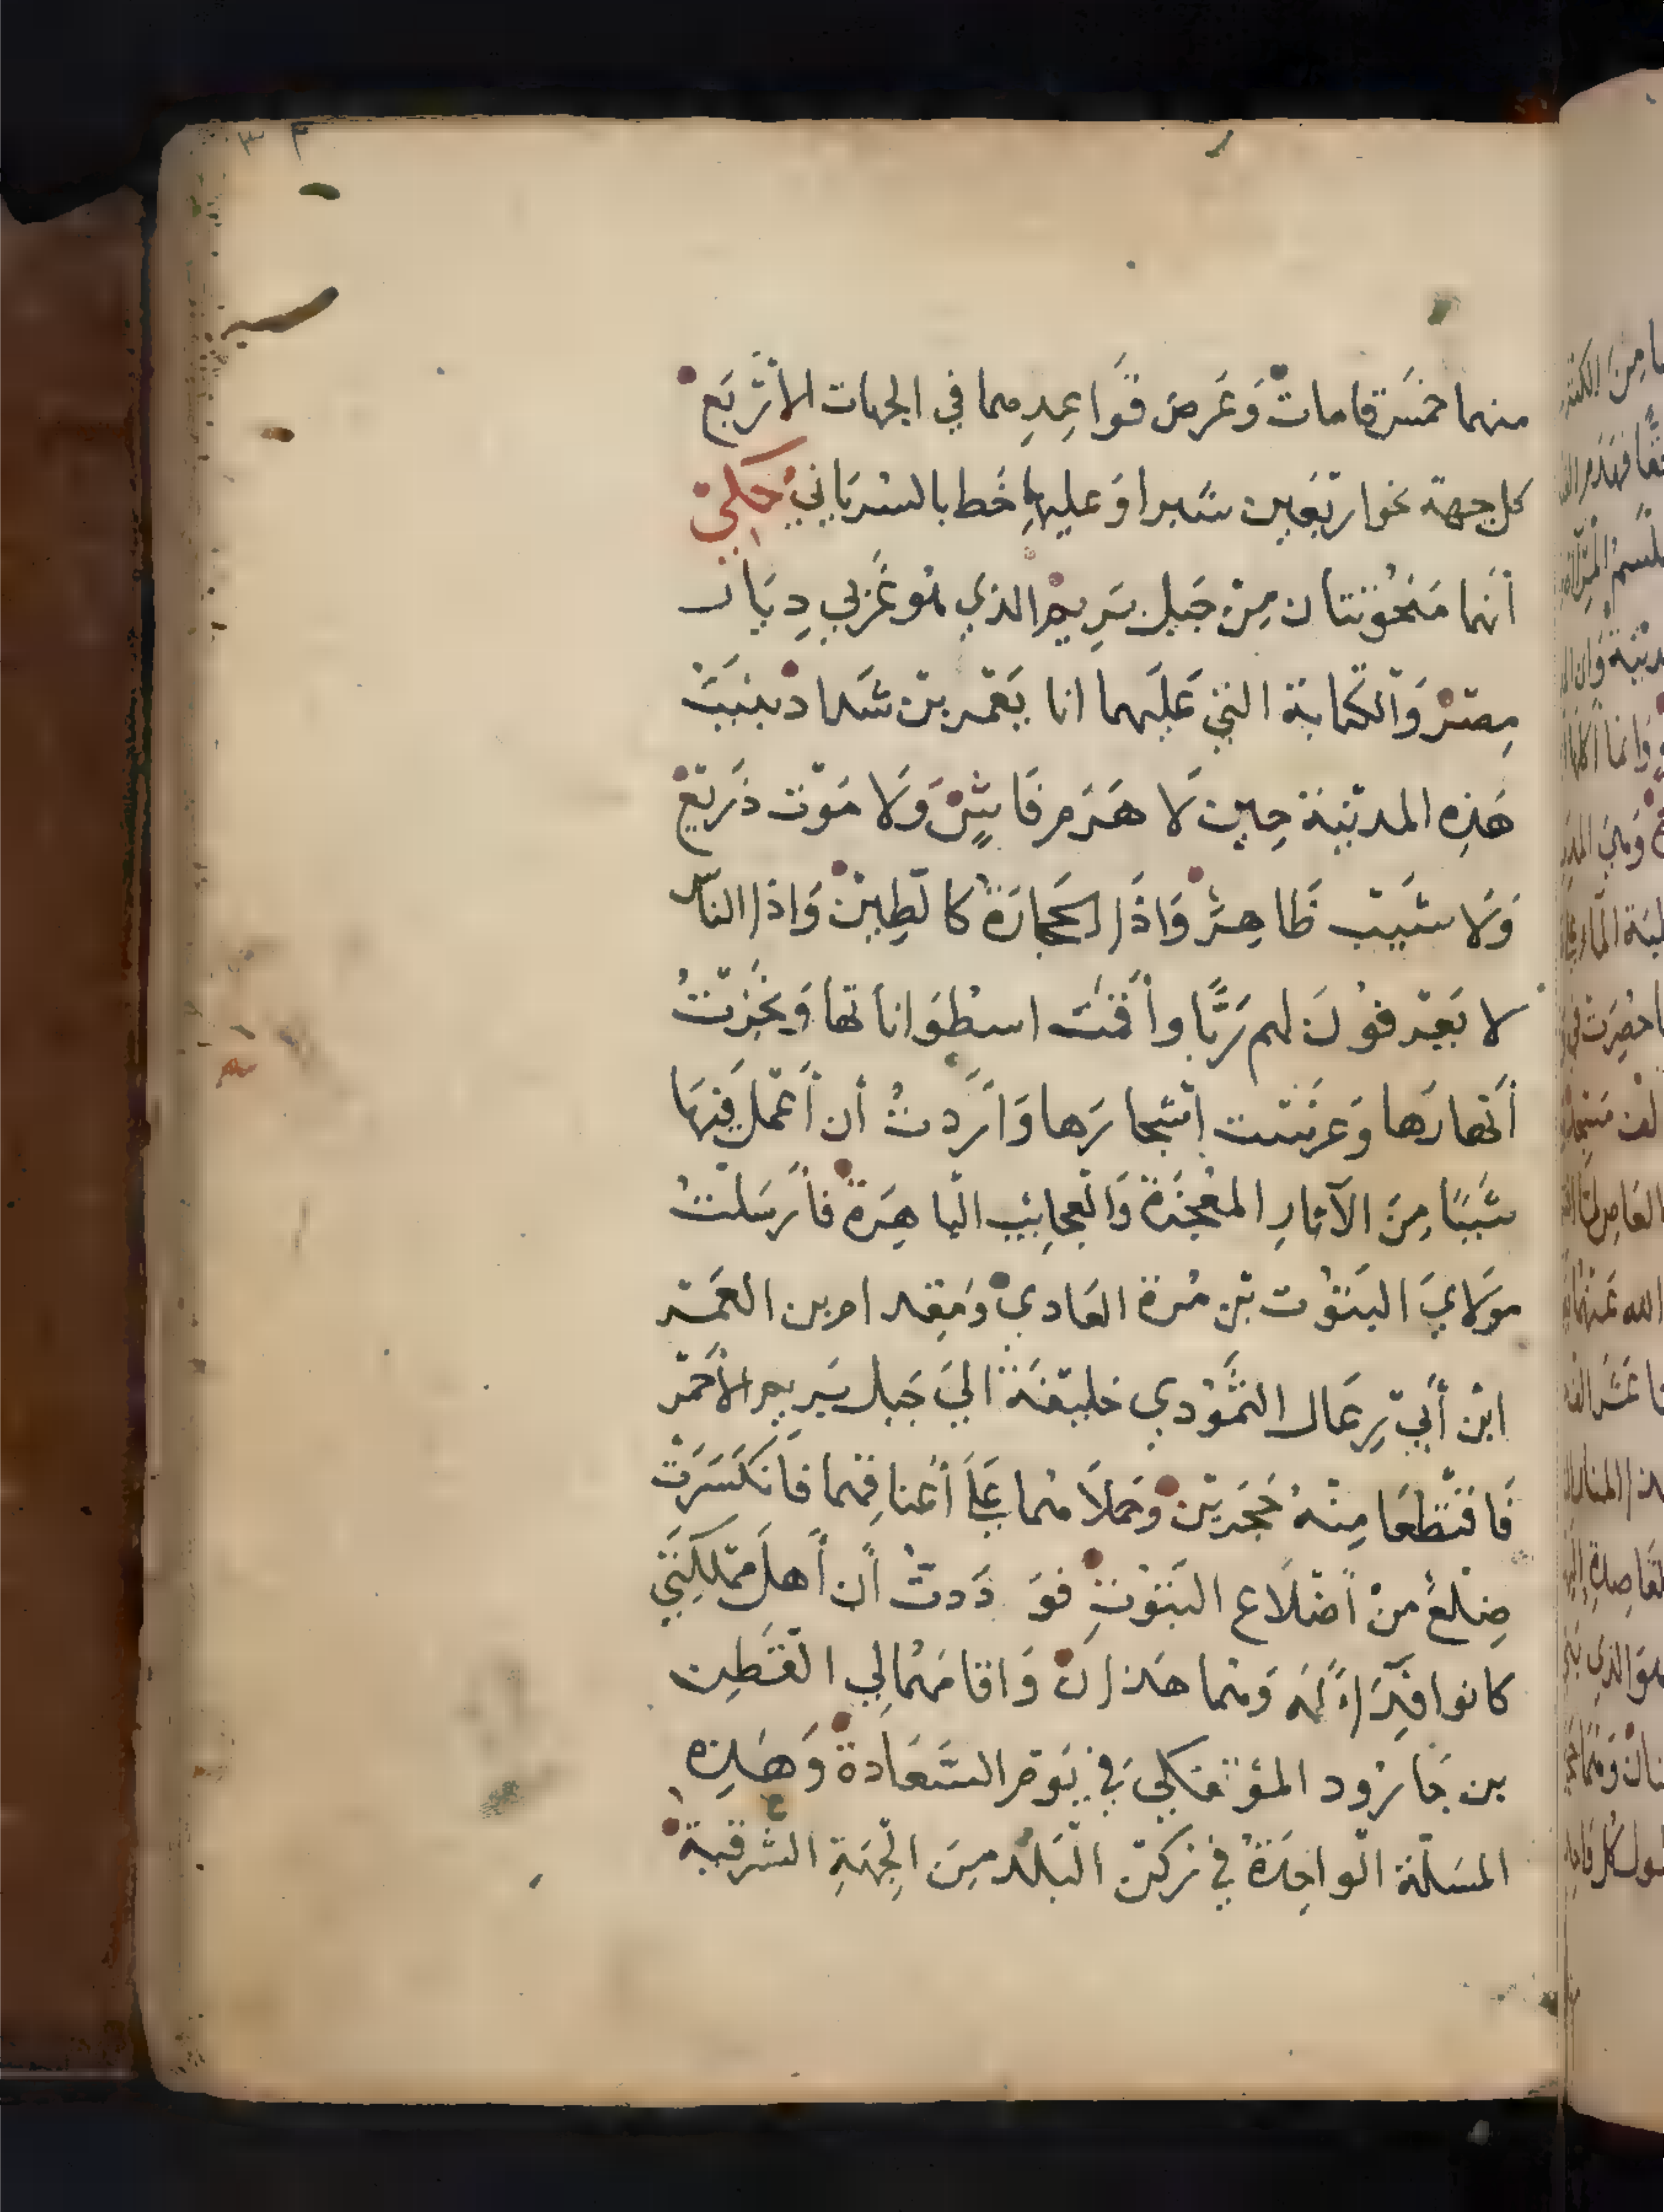 منهما خمسَة قامات وَعَرض قَواعِدِهما في الجهات الأربَع
كل جهة نحو اربَعين شبرا وَعليها خَط بالسريَاني حكي
أنهما مَنحُوتتان مِنْ جَبل بَرِيم الذي هُو غَربي دِيَار
مِصْر وَالكتابة التي عَليهما انا يَعْمر بن شَداد بنيَتُ
هَذِه المدينَة حِين لَا هَرَم فَاشٍ وَلا مَوْت ذَريْع
وَلَا شَيْب ظَاهِر وَاذَا الحجَارَة كالطِين وَاذا الناس
لا يَعْرفُونَ لهم رَبًّا وأقمْتُ اسطوَاناتها وَفجّرتُ
أنهارَها وَغرَسْت أشجارَها وَأرَدتُ أن أعْمل فيهَا
شَيئًا مِنَ الآثارِ المعْجزَة وَالعجايب الباهِرَة فأرسَلْتُ
مولَايَ البَتُوت بْن مُرة العَاديْ وَمِقدام بن العَمْر
ابْن أبيْ رِعَال الثَّمُودي خليفَة اليَ جَبل بَرِيم الأحمْر
فَاقتَطعَا مِنْهُ حَجَريْن وَحَملَاهُما عَلَى أعناقِهما فَانكَسَرَتْ
ضِلعُ منْ أضْلَاع البَتوْتِ فوَدَدتُ أن أهلَ مَمْلكَتي
كانوا فِدَاءً لَهُ وَهما هَذان وَاقامَهُما لي القَطِن
بن جَارُود المؤتفكي في يَوْم السَّعَادة وَهَذِه
المسَلة الوَاحِدَة في رُكن البَلد مِنَ الجِهَةِ الشَرقية